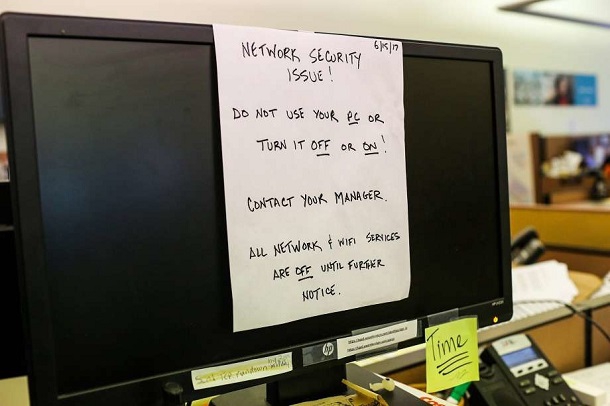 6/15/17
NETWORK SECURITY
ISSUE!
DO NOT USE YOUR PC OR
TURN IT OFF OR ON!
CONTACT YOUR MANAGER.
ALL NETWORK & WIFI SERVICES
ARE OFF UNTIL FURTHER
NOTICE.
hp
Time